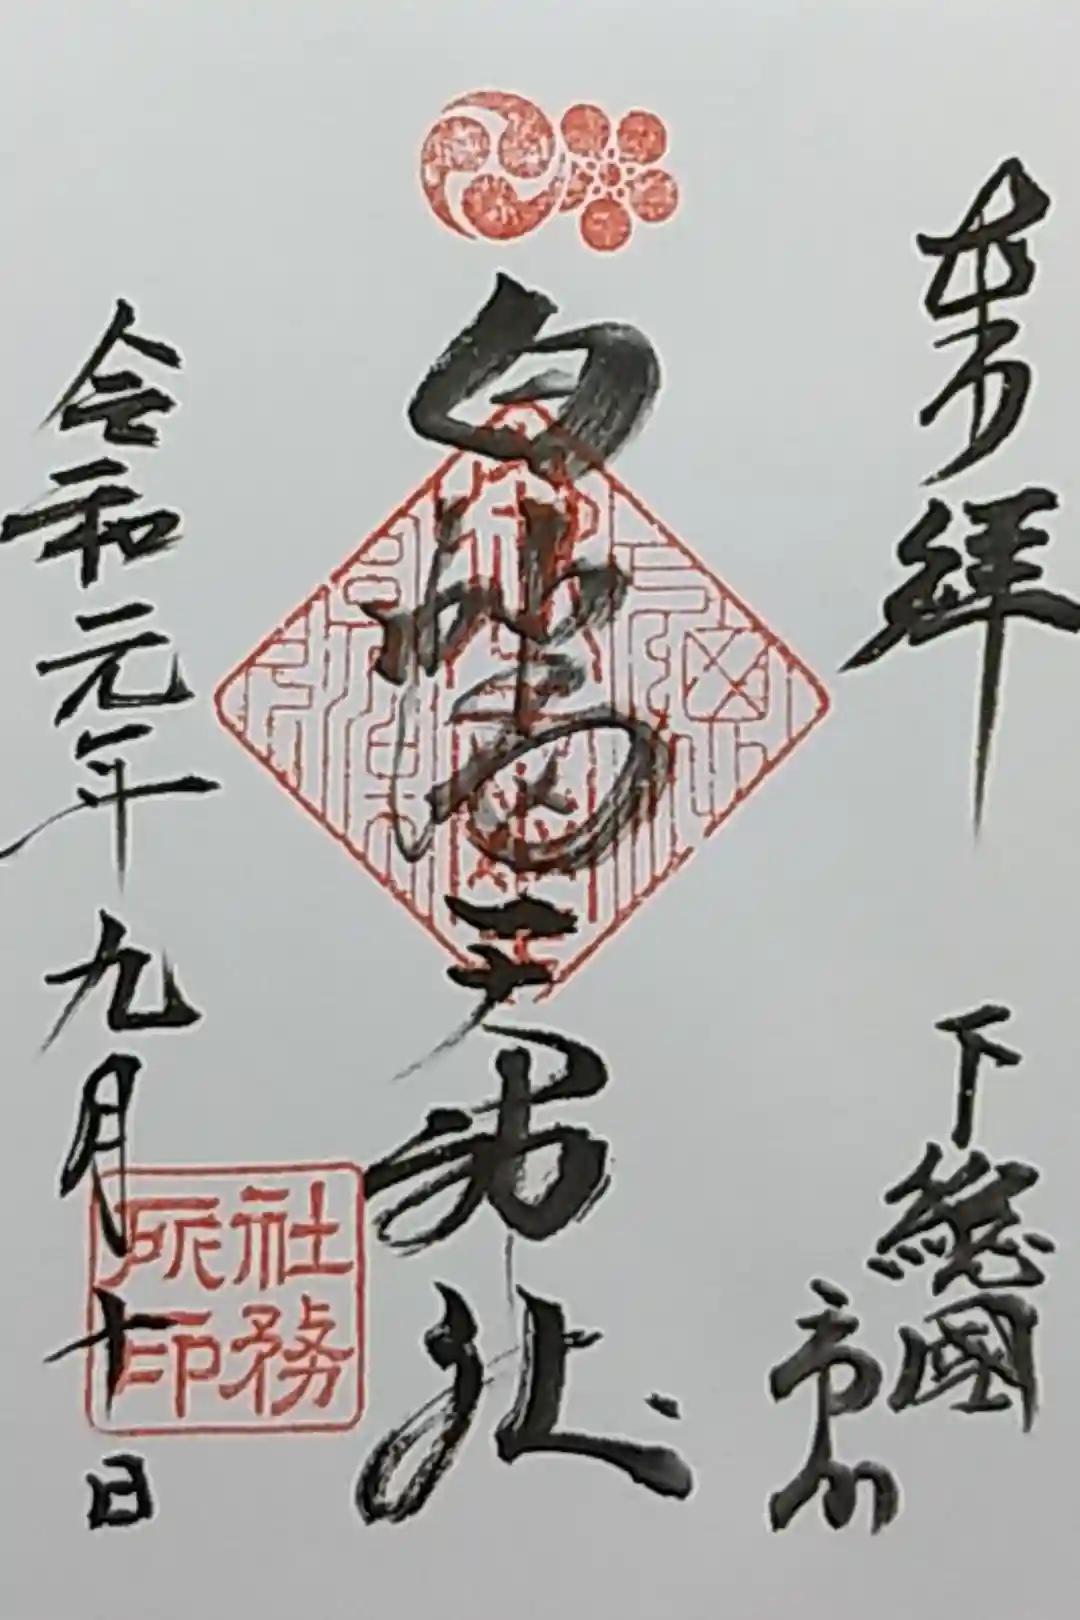 奉拝
下總國
市川
白幡天神社
令和元年九月十日
社務
所印